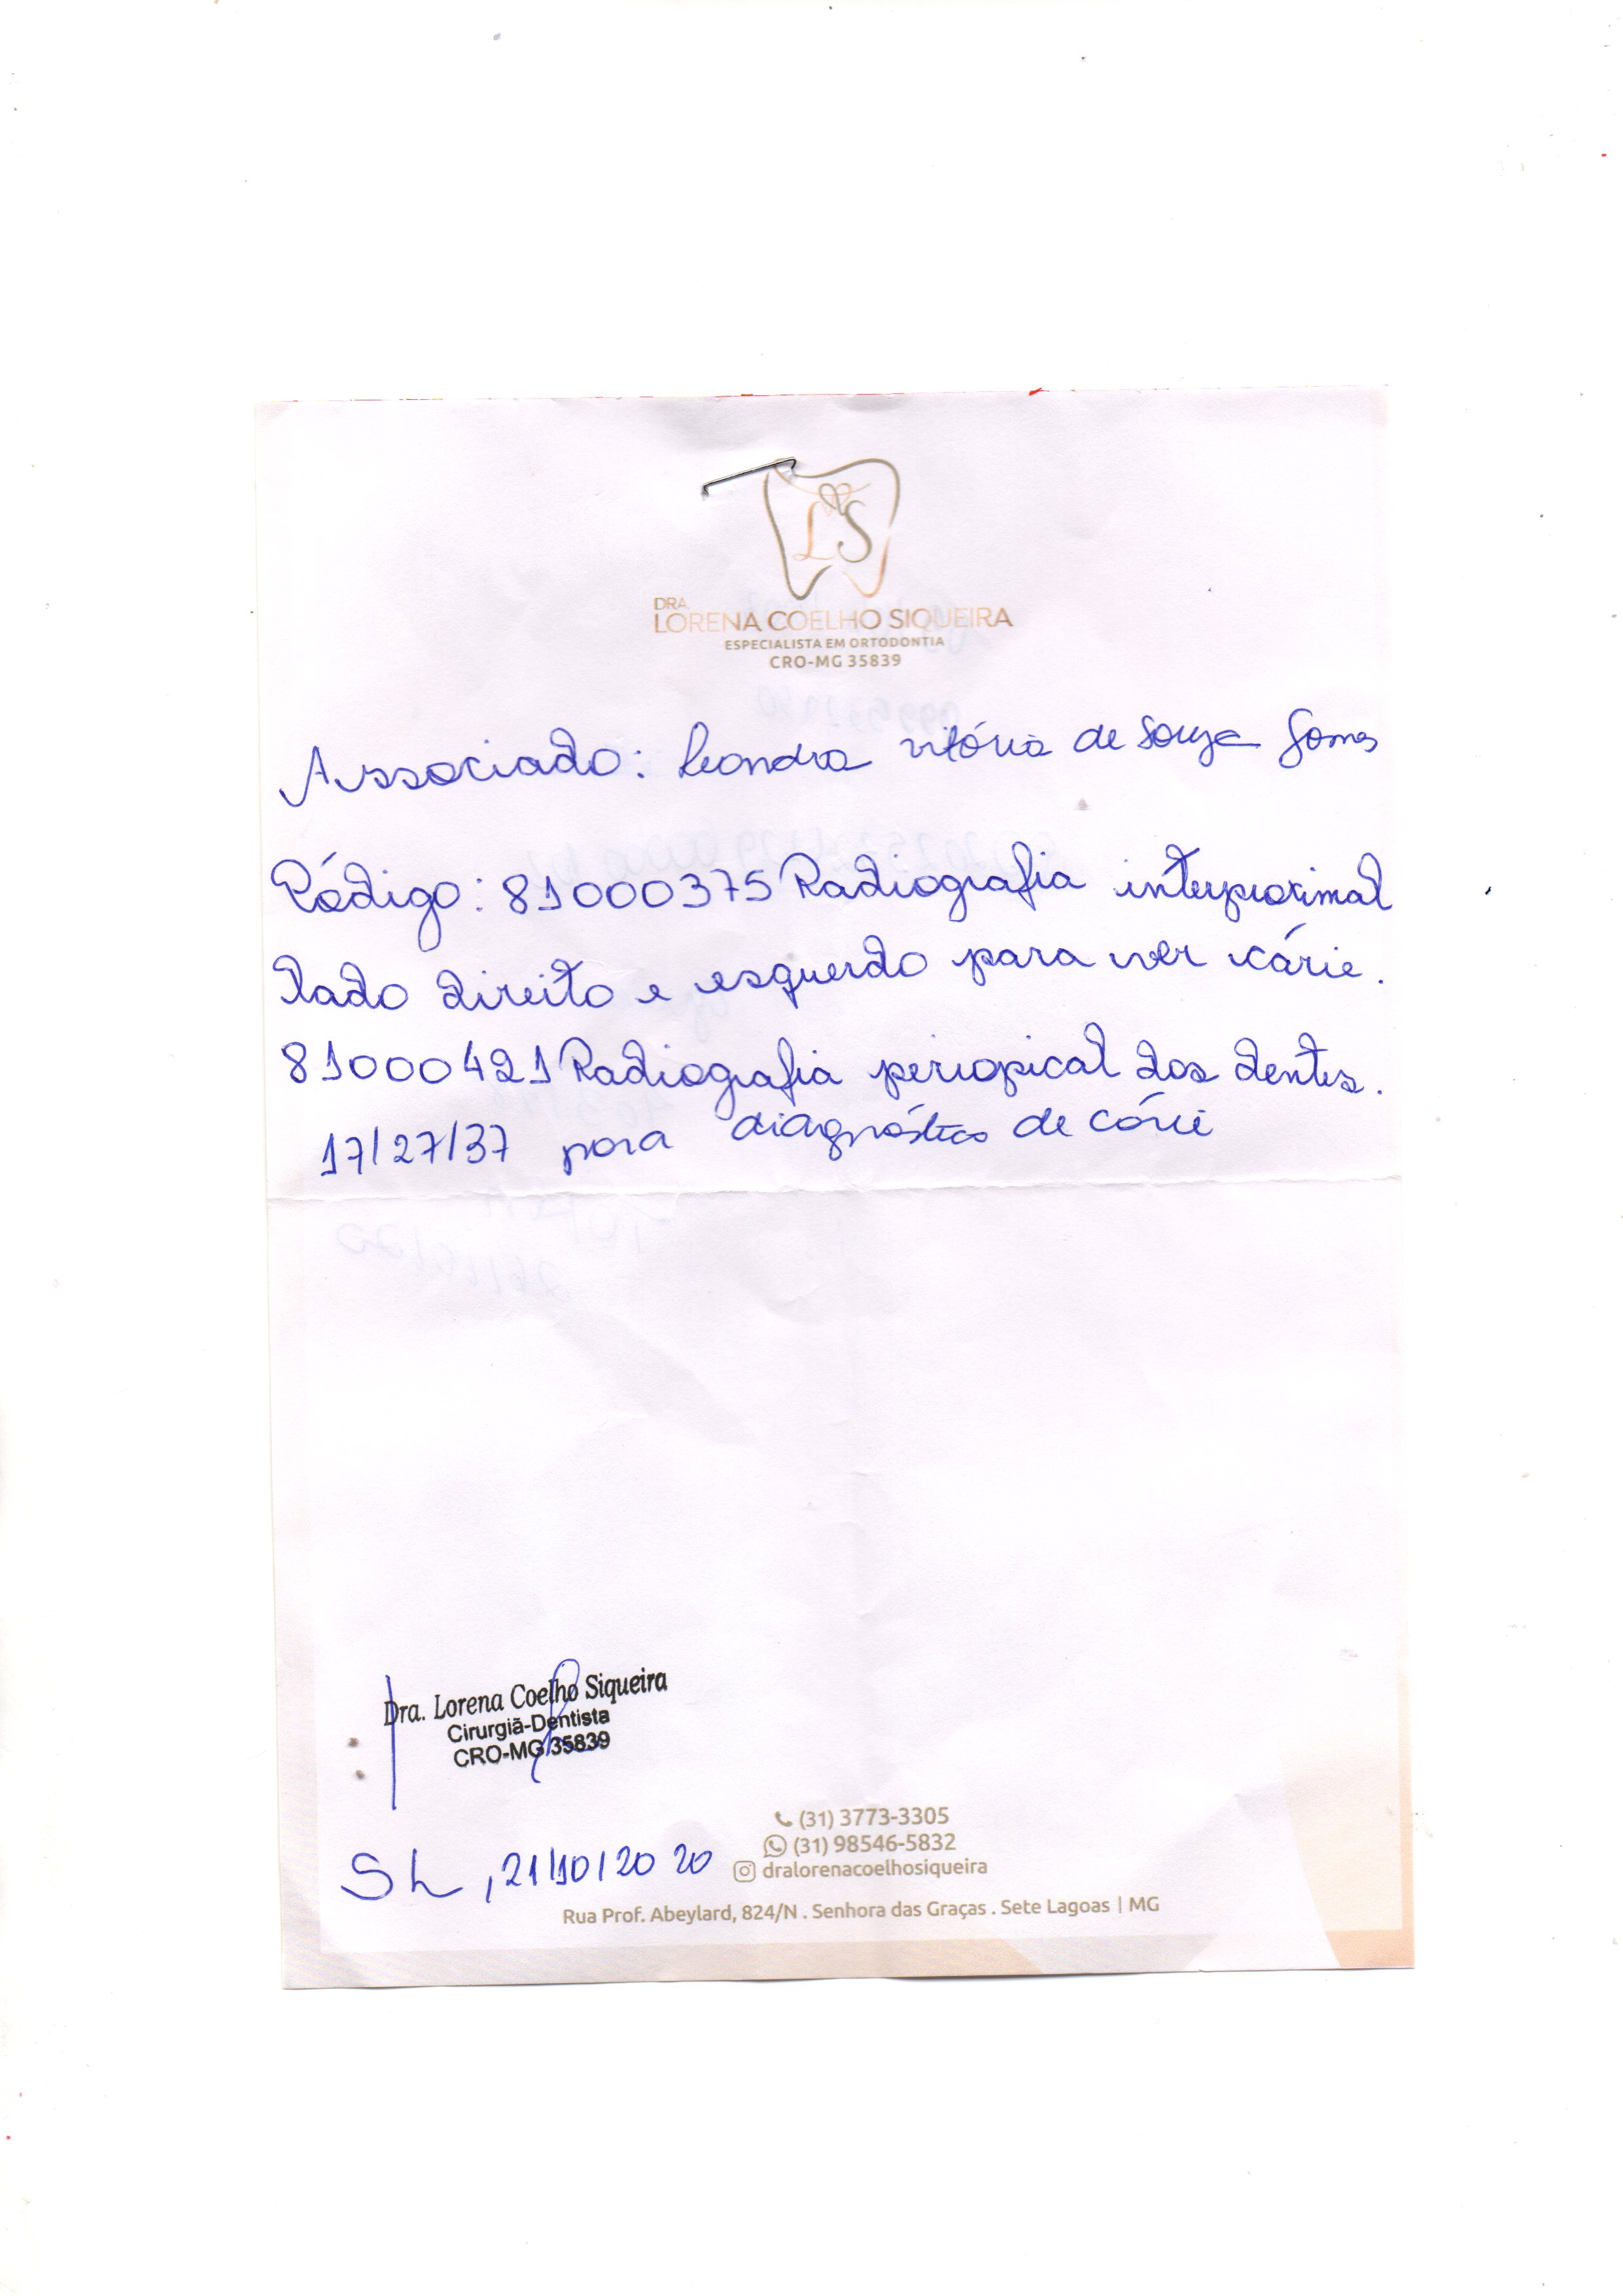 LS
DRA.
LORENA COELHO SIQUEIRA
ESPECIALISTA EM ORTODONTIA
CRO-MG 35839
Associado: Leandra vitória de Souza Gomes
Código: 81000375 Radiografia interproximal
lado direito e esquerdo para ver cárie.
81000421 Radiografia periapical dos dentes.
17/27/37 para diagnóstico de cárie
Dra. Lorena Coelho Siqueira
Cirurgiã-Dentista
CRO-MG 35839
(31) 3773-3305
(31) 98546-5832
SL, 21/10/2020
dralorenacoelhosiqueira
Rua Prof. Abeylard, 824/N . Senhora das Graças . Sete Lagoas | MG